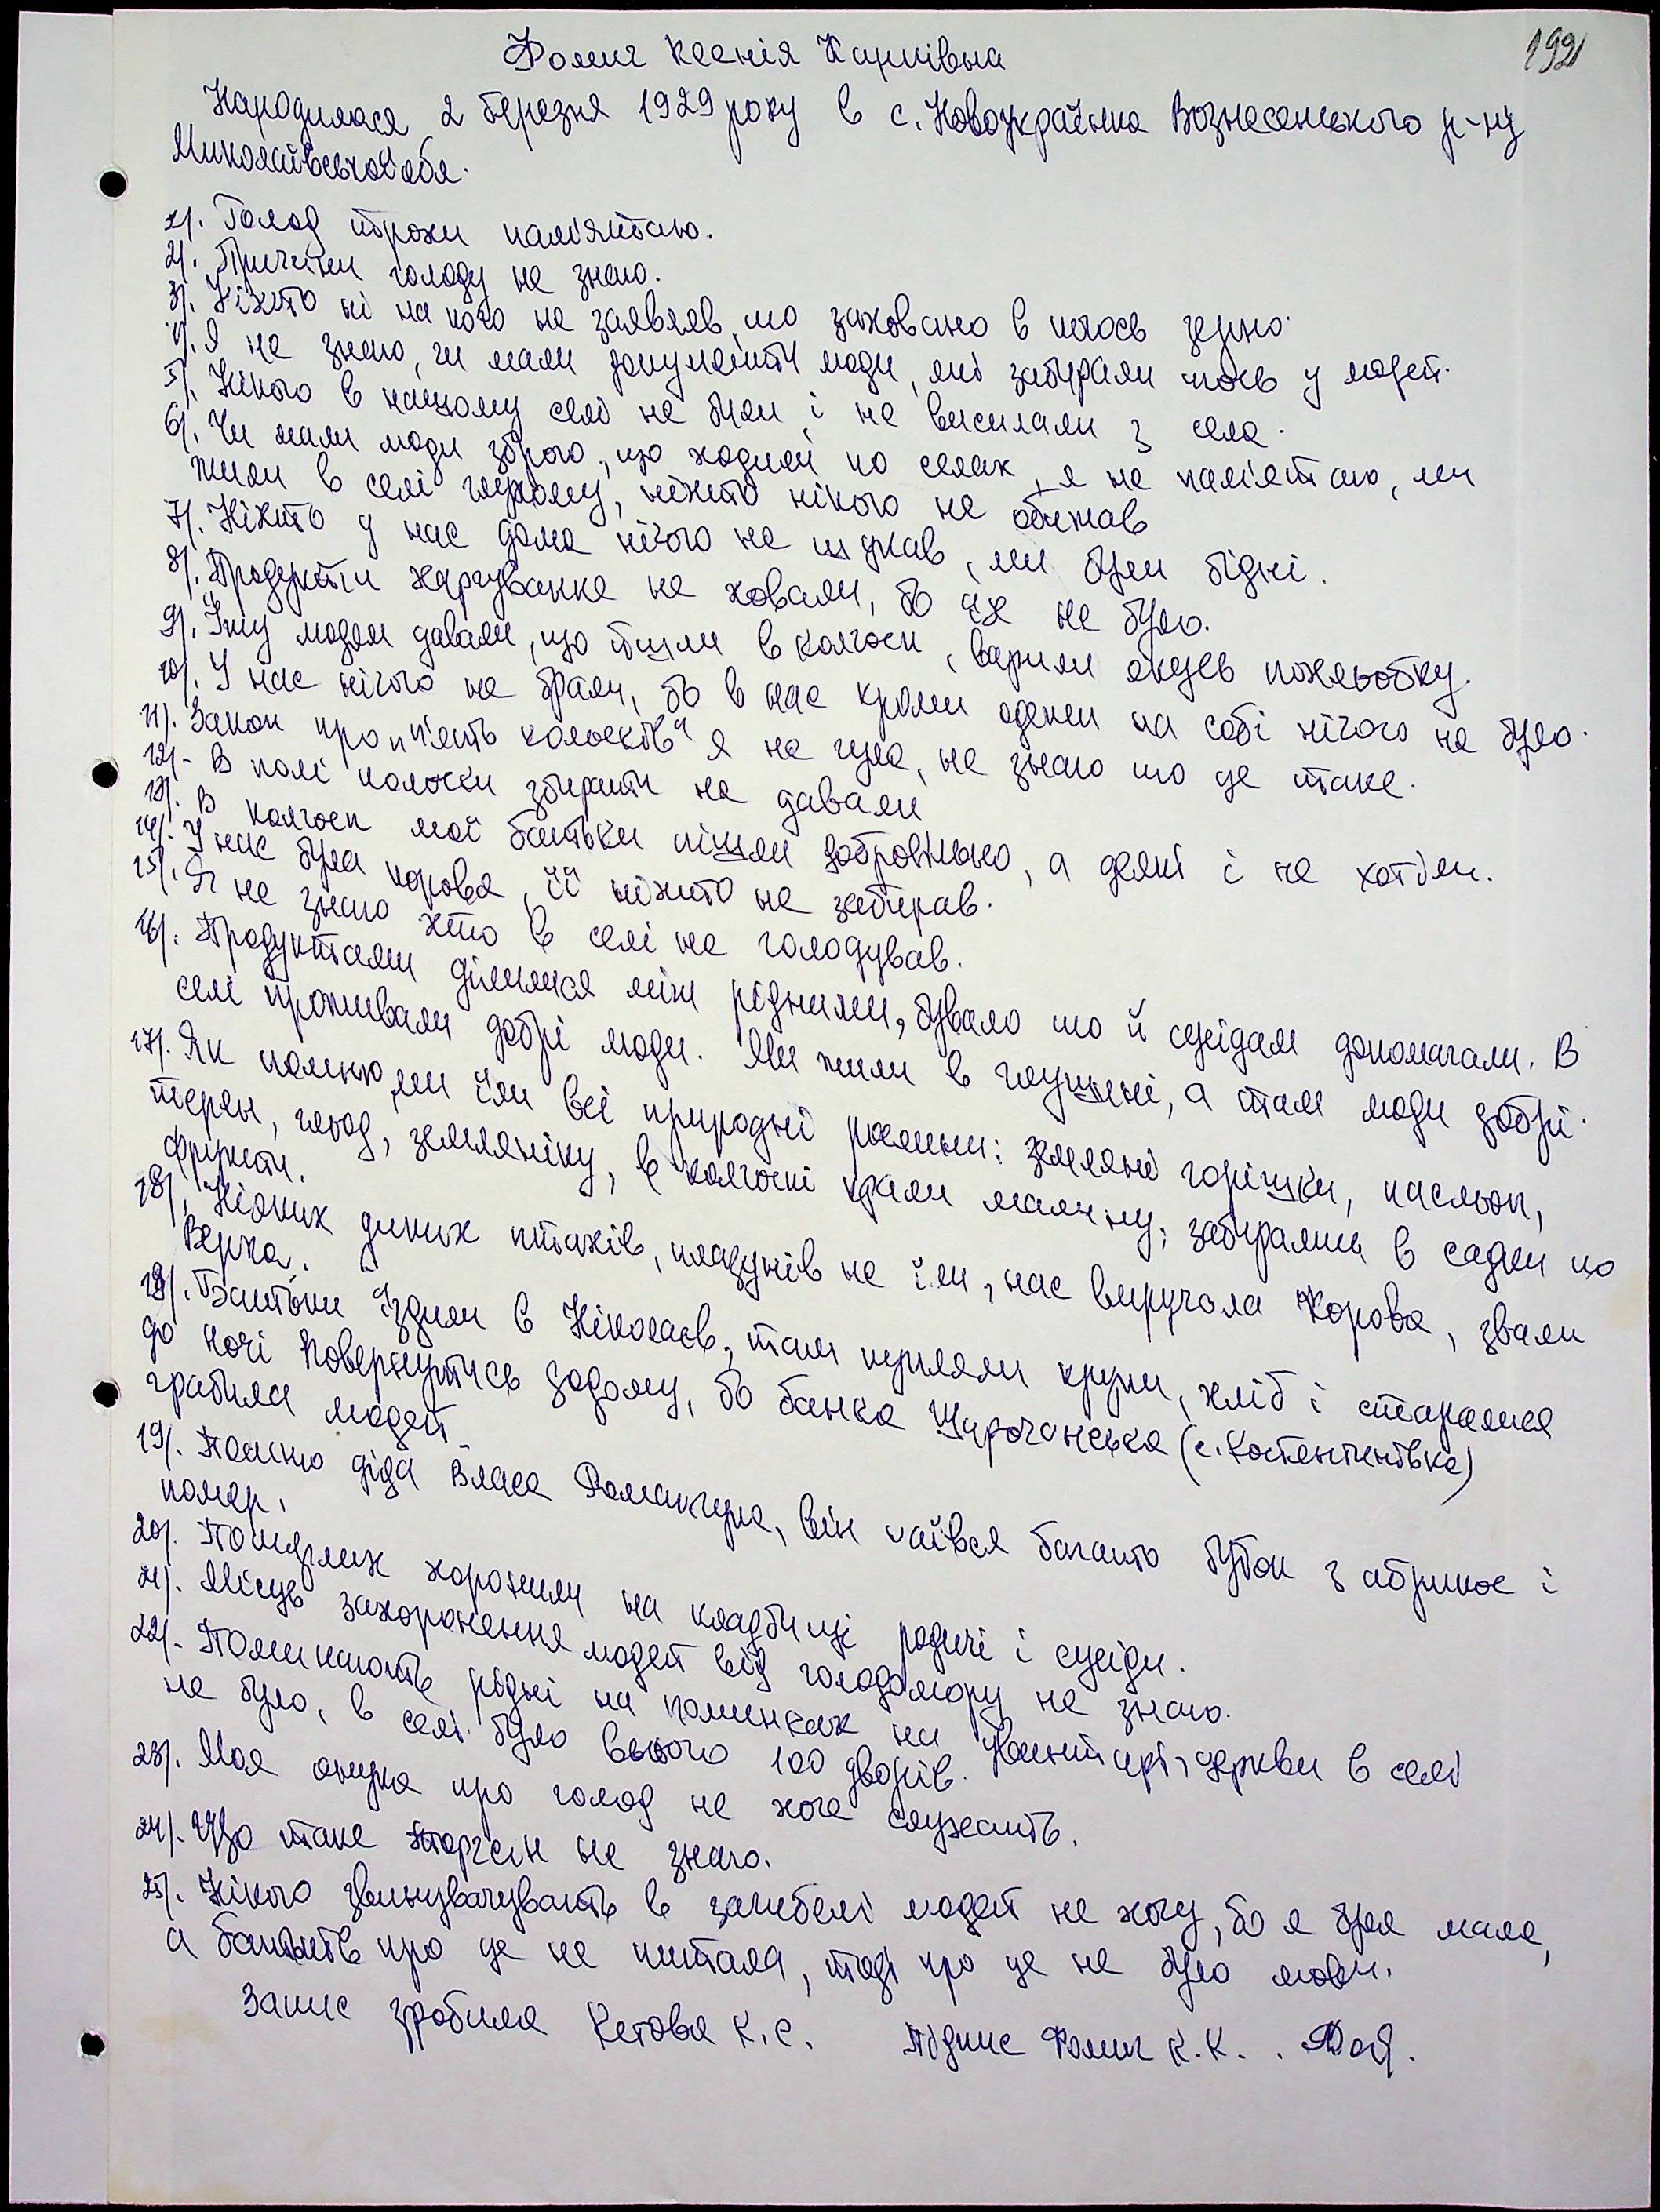 199
Фомич Ксенія Карпівна
Народилася 2 березня 1929 року в с. Новоукраїнка Вознесенського р-ну
Миколаївської обл.
1). Голод трохи пам'ятаю.
2). Причини голоду не знаю.
3). Ніхто ні на кого не заявляв, шо заховано в когось зерно.
4). Я не знаю, чи мали документи люди, які забирали щось у людей.
5). Нікого в нашому селі не били і не висилали з села.
6). Чи мали люди зброю, що ходили по селах, я не пам'ятаю, ми
жили в селі глухому, ніхто нікого не обіжав
7). Ніхто у нас дома нічого не шукав, ми були бідні.
8). Продукти харчування не ховали, бо їх не було.
9). Їжу людям давали, що йшли в колгосп, варили якусь похльобку.
10). У нас нічого не брали, бо в нас кроми одежи на собі нічого не було.
11). Закон про "п'ять колосків" я не чула, не знаю шо це таке.
12). В полі колоски збирати не давали
13). В колгосп мої батьки пішли добровільно, а деякі і не хотіли.
14). У нас була корова, її ніхто не забирав.
15). Я не знаю хто в селі не голодував.
16). Продуктами ділилися між рідними, бувало шо й сусідам допомагали. В
селі проживали добрі люди. Ми жили в глушині, а там люди добрі.
17). Як помню, ми їли всі природні рослини: земляні горішки, пасльон,
терен, гльод, земляніку, в колгоспі крали малину, забирались в садки по
фрукти.
18). Ніяких диких птахів, плазунів не їли, нас виручала корова, звали
Верка.
18). Батьки їздили в Ніколаєв, там купляли крупи, хліб і старалися
до ночі повернутись додому, бо банка (с. Костянтинівка)
грабила людей
19). Помню діда Власа, він наївся багато бубок з абрикос і
помер.
20). Померлих хоронили на кладбищі родичі і сусіди.
21). Місць захоронення людей від голодомору не знаю.
22). Поминають рідні на поминках на цвинтарі, церкви в селі
не було, в селі було всього 100 дворів.
23). Моя онука про голод не хоче слухать.
24). Що таке торгсін не знаю.
25). Нікого звинувачувать в загибелі людей не хочу, бо я була мала,
а батьків про це не питала, тоді про це не було мови.
Запис зробила Кетова К.С. Підпис Фомич К.К.